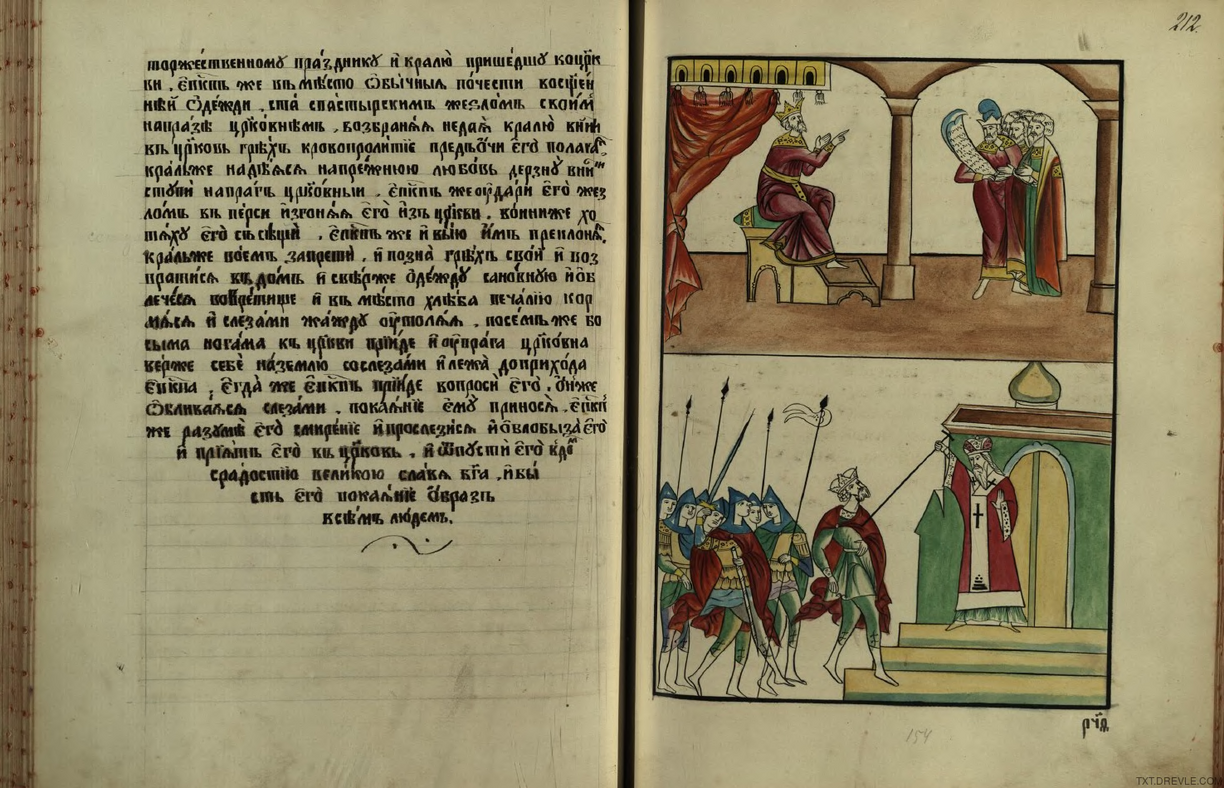 торжественному праздникꙋ и҆ кралю̀ пришедшꙋ ко цр҃к
ви . є҆пкⷭ҇пъ же въ мѣ́сто ѡ҆бы́чныѧ по́чести
нѣй ѻ҆де́жди , ста̀ с пастырскимъ жезломъ свои́мъ
на празѣ̀ цр҃ко́внѣмъ , возбранѧ́ѧ не даѧ̀ кралю̀ вни́ти
въ цр҃ковь грѣхъ кровопроли́тїе пред̾ ѻ҆чи є҆гѡ̀ полагаѧ
кра́ль же надѣ́ѧсѧ на пре́жнюю любо́вь дерзнꙋ̀
стꙋпи́ти на пра́гъ цр҃ко́вный . є҆пкⷭ҇пъ же ᲂу҆да́ри є҆го̀ жез
ломъ въ пе́рси и҆згонѧ́ѧ є҆го̀ и҆зъ цр҃кви , во́ини же хо
тѧ́хꙋ є҆го̀ . є҆пкⷭ҇пъ же и҆ вы́ю и҆̀мъ преклонѧ́ѧ
кра́ль же во́емъ запретѝ , и҆ позна̀ грѣ́хъ сво́й и҆ воз
врати́сѧ въ до́мъ и҆ све́рже ѻ҆де́ждꙋ сано́внꙋю и҆ ѡ҆б
лече́сѧ во вре́тище и҆ въ мѣ́сто хлѣ́ба печа́лїю кор
мѧ́сѧ и҆ слеза́ми жа́ждꙋ ᲂу҆толѧ́ѧ , посе́мъ же бо
сыма ногама къ цр҃кви прїи́де и҆ ᲂу҆ пра́га цр҃ко́вна
ве́рже себѐ на́ землю со слеза́ми и҆ лежа̀ до прихо́да
є҆пкⷭ҇па , є҆гда́ же є҆пкⷭ҇пъ прїи́де вопросѝ є҆го̀ , ѻ҆́нъ же
ѡ҆блива́ѧсѧ слеза́ми , покаѧ́нїе є҆мꙋ̀ приносѧ̀ , є҆пкⷭ҇пъ
же разꙋмѣ̀ є҆гѡ̀ смире́нїе и҆ прослези́сѧ и҆ ѡ҆блобыза̀ є҆го̀
и҆ прїѧ́тъ є҆го̀ въ цр҃ковь , и҆ ѿпꙋстѝ є҆го̀
с ра́достїю вели́кою сла́вѧ бг҃а , и҆ бы́
сть є҆гѡ̀ покаѧ́нїе ѻ҆́бразъ
всѣ́мъ лю́демъ .
212
154
TXT.DREVLE.COM